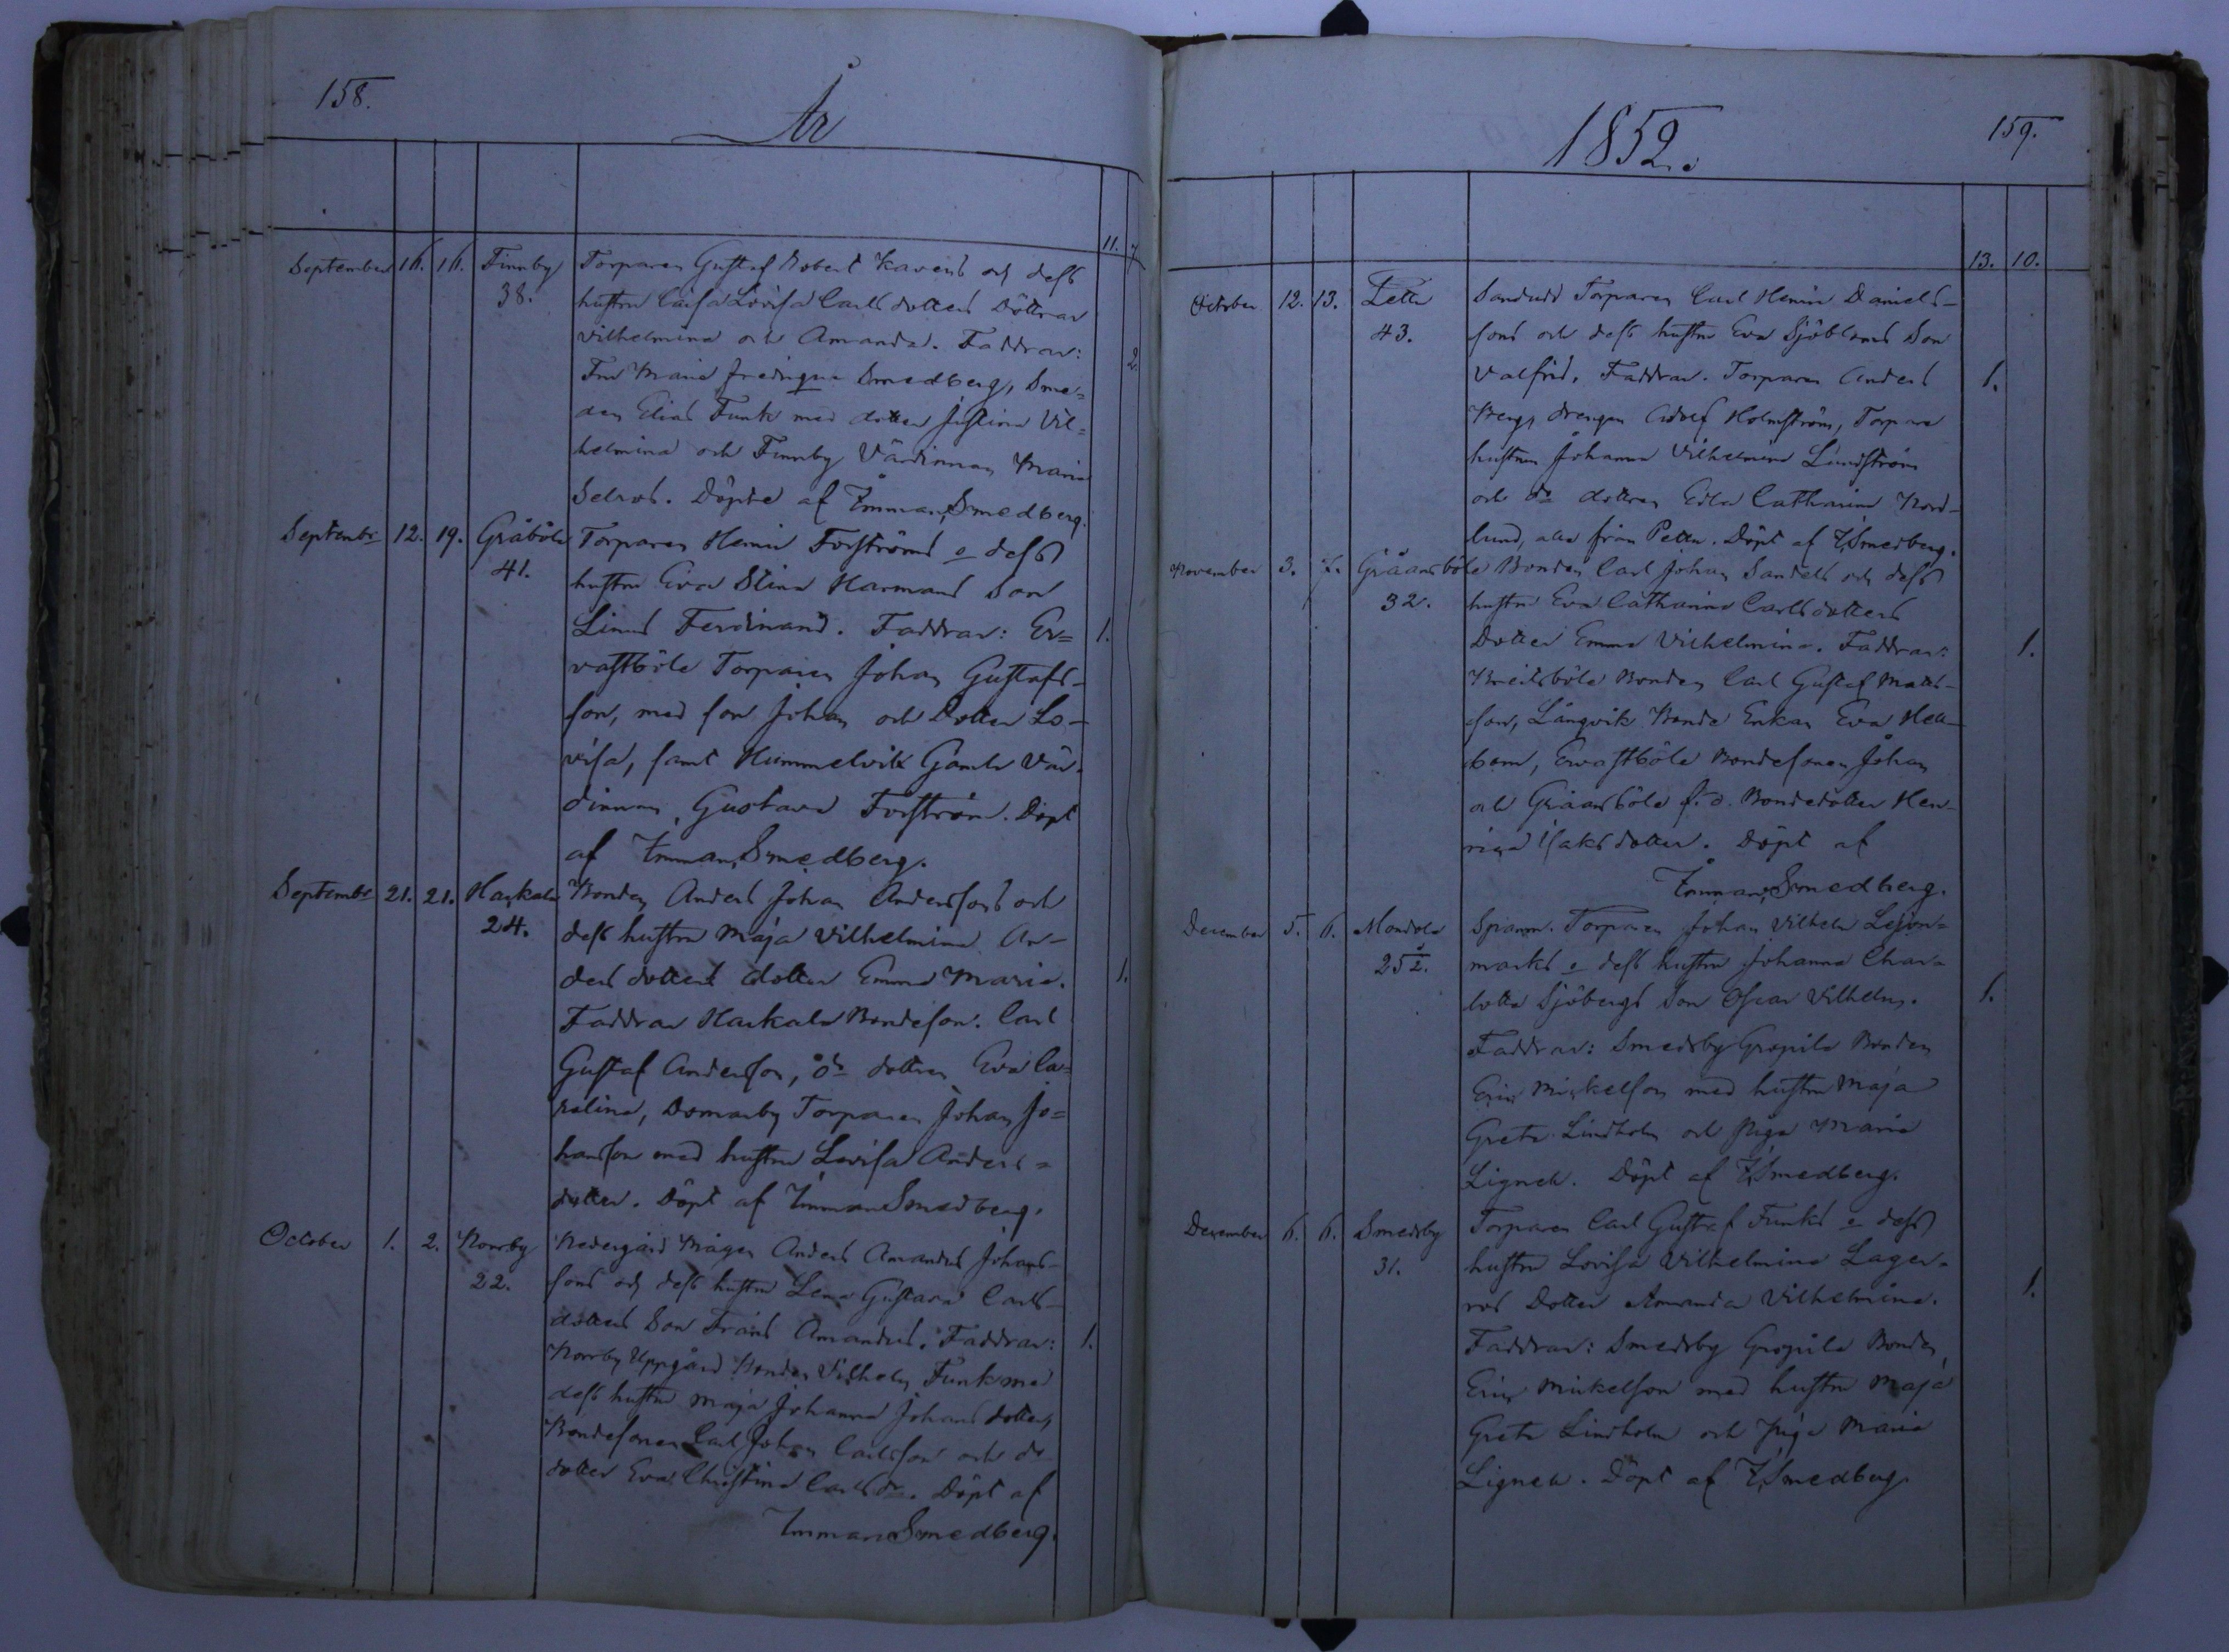 158.
År
11. 7
September 16. 16. Finnby Torparen Gustaf Robert Kavens och dess
38. hustru Caisa Lovisa Carlsdotters Döttrar
Vilhelmina och Amanda. Faddrar: 2.
Fru Maria Fredrique Smedberg, Sme=
den Elias Funk med dotter Justina Vil=
helmina och Finnby Värdinnan Maria
Selros. Döpte af Imman. Smedberg.
Septembr 12. 19. Gråböle Torparen Henric Forströms o dess
41. hustru Eva Stina Harmans Son
Linus Ferdinand. Faddrar: Er= 1.
vastböle Torparen Johan Gustafs-
son, med son Johan och Dotter Lo-
visa, samt Hummelvik Gamla Vär-
dinnan, Gustava Forström. Döpt
af Imman. Smedberg.
Septembr 21. 21. Harkala Bonden Anders Johan Anderssons och
24. dess hustru Maja Vilhelmina An-
dersdotters dotter Emma Maria. 1.
Faddrar Harkala Bondeson. Carl
Gustaf Andersson, do dottren Eva Ca=
rolina, Domarby Torparen Johan Jo=
hansson med hustru Lovisa Anders=
dotter. Döpt af Imman Smedberg.
October 1. 2. Norrby Nedergård Mågen Anders Amandus Johans-
22. sons och dess hustru Lena Gustava Carls-
dotters Son Frans Amandus. Faddrar: 1.
Norrby Uppgård Bonden Vilhelm Funk med
dess hustru Maja Johanna Johansdotter,
Bondesonen Carl Johan Carlsson och do
dotter Eva Christina Carlsdr. Döpt af
Imman Smedberg.
1852.
159.
13. 10.
October 12. 13. Pettu Sandudd Torparen Carl Henric Daniels-
43. sons och dess hustru Eva Sjöbloms Son
Valfrid. Faddrar. Torparen Anders 1.
Berg, drengen Adolf Holmström, Torpare
hustrun Johanna Vilhelmina Lundström
och do dottren Edla Catharina Nord-
lund, alla från Pettu. Döpt af I. Smedberg.
November 3. 7. Gråansböle Bonden Carl Johan Sandels och dess
32. hustru Eva Catharina Carlsdotters
Dotter Emma Vilhelmina. Faddrar: 1.
Breidsböle Bonden Carl Gustaf Matts-
son, Långvik Bonde Enkan Eva Hell-
bom, Ervastböle Bondesonen Johan
och Gråansböle f.d. Bondedotter Hen-
rica Isaksdotter. Döpt af
Imman. Smedberg.
December 5. 6. Mondola Spanm. Torparen Johan Vilhelm Lejon=
25 1/2. marks o dess hustru Johanna Char=
lotta Sjöbergs Son Oscar Vilhelm. 1.
Faddrar: Smedsby Gropila Bonden
Eric Mickelson med hustru Maja
Greta Lindholm och Piga Maria
Lignell. Döpt af I. Smedberg.
December 6. 6. Smedsby Torparen Carl Gustaf Funks o dess
31. hustru Lovisa Vilhelmina Lager=
ros Dotter Amanda Vilhelmina. 1.
Faddrar: Smedsby Gropila Bonden
Eric Mickelson med hustru Maja
Greta Lindholm och Piga Maria
Lignell. Döpt af I. Smedberg